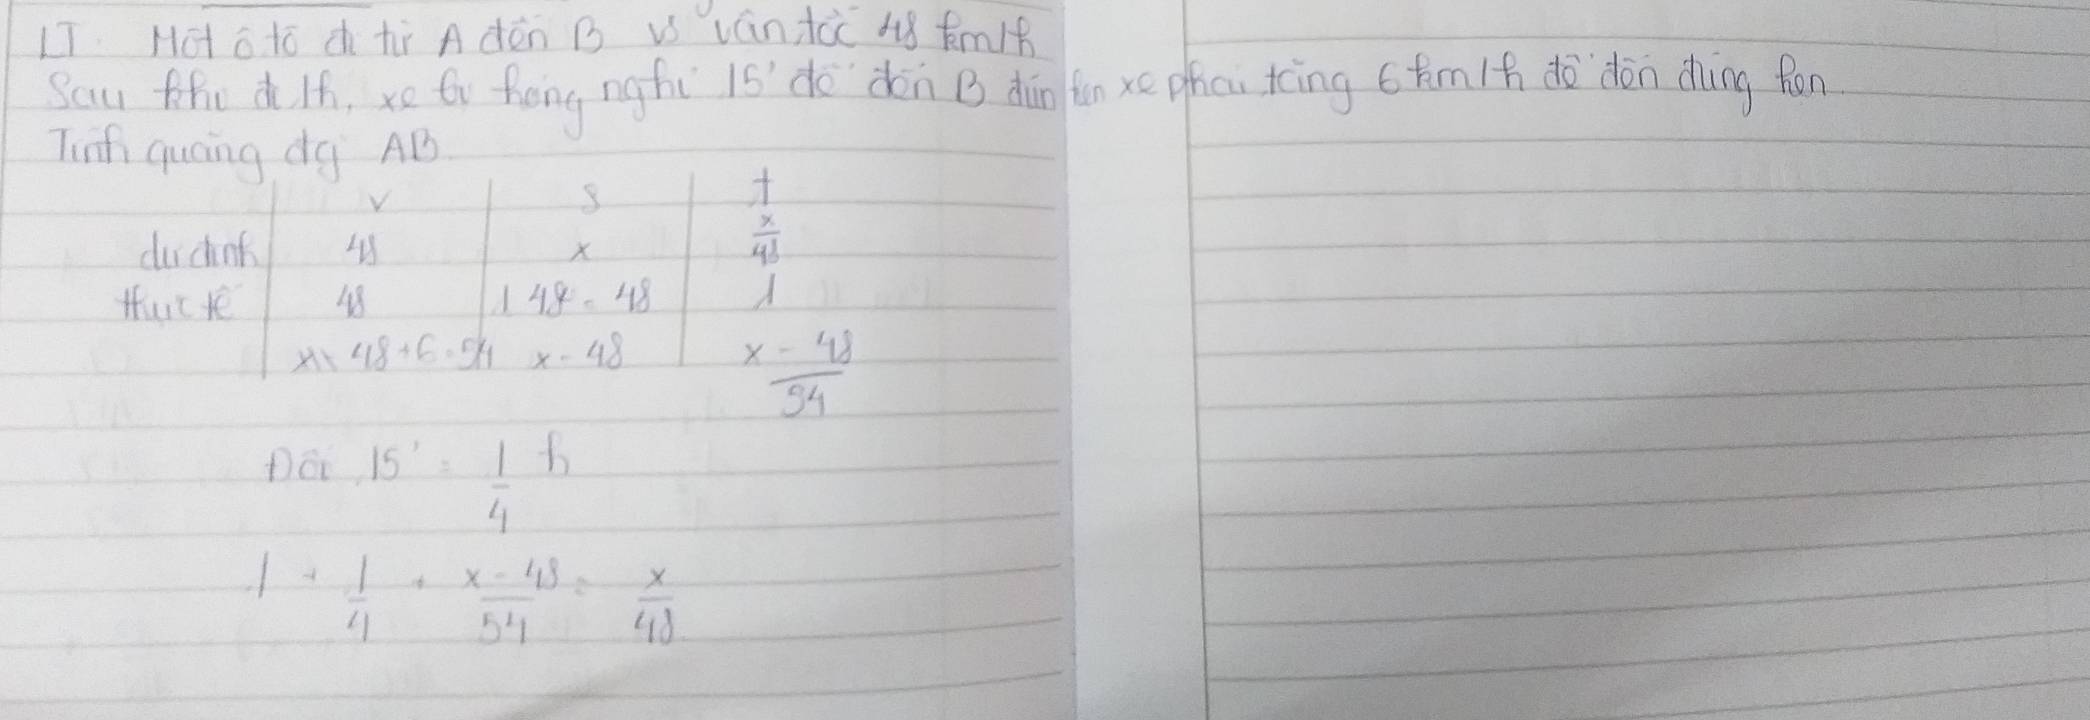 LT. Một ô tô đi từ A đến B vs vận tốc 48 km/h
Sau khi đi 1h, xe bị hỏng nghỉ 15' để đến B đún hẹn xe phải tăng 6 km/h để đến đúng hẹn.
Tính quãng đg AB
v s t
dự định 48 x x/48
thực tế 48 1 48 = 48 1
48+6=54 x-48 x-48/54
Đổi 15' = 1/4 h
1 + 1/4 + x-48/54 = x/48